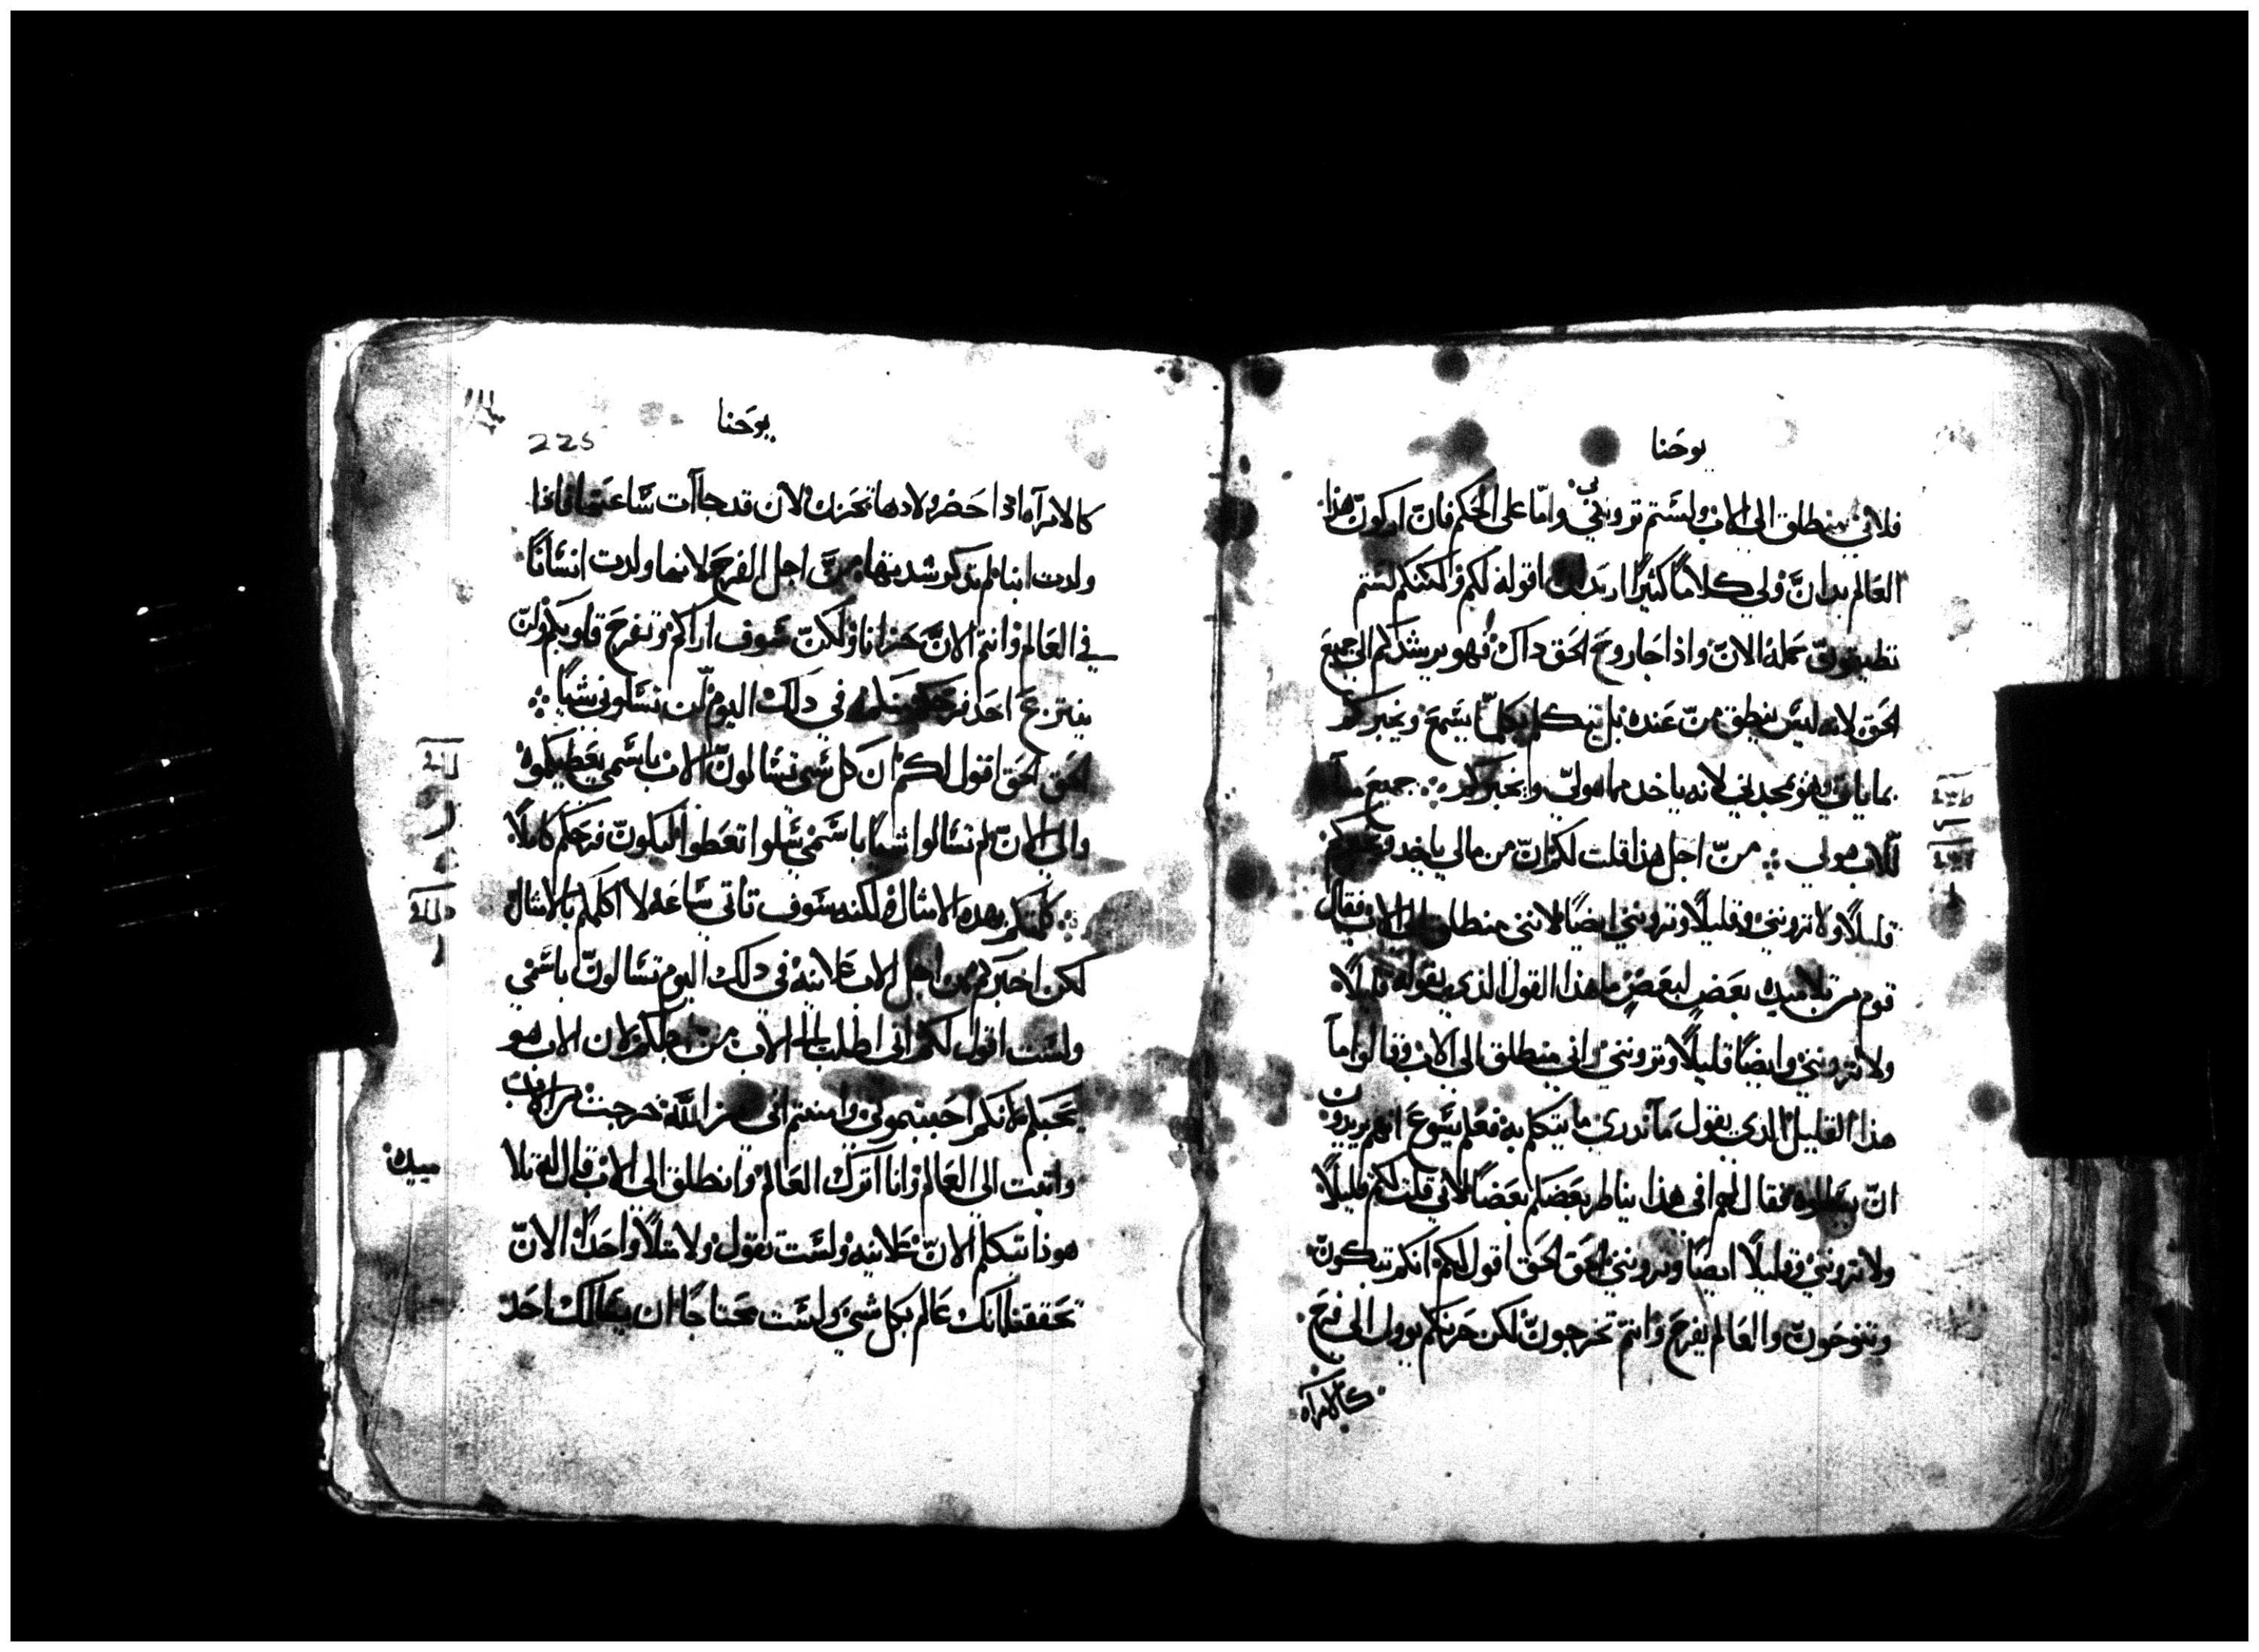 يوحنا
فلاني منطلق الى الاب ولستم تروننى وامّا على الحكم فانّ اركون هذا
العَالم يدانّ ولي كلامًا كثيرًا اقوله لكم ولكنكم لستم
تطيقونّ حمله الانّ واذا جَا روحَ الحَق داك فهو يرشدكم الى جميعَ
الحَق لانه ليسَ ينطق منّ عَنده بل يتكلم بكلمّا يسَمعَ ويخبركم
بما ياتي وهو يمجدني لانه ياخد مما هو ليّ ويخبركم ܀ جميعَ مآ
للاب هو لي ܀ منّ اجل هذا قلت لكم انّ من مالي ياخد ويخبركم
قليلًا ولا تروننيْ وقليلًا وتروننيْ ايضًا لاننى منطلق الى الاب فقال
قوم من تلاميده بعَضٍ لبعَضٍ ما هذا القول الذي يقوله قليلًا
ولا تروننيْ وايضًا قليلًا وتروننيْ وانى منطلق الى الاب وقالوا مآ
هذا القليل الدي يقول مَآ ندري ما يتكلم به فعَلم يسَوعَ انهم يريدون
انّ يسَالوه فقال لهم افى هذا يناطر بعَضكم بعَضًا لاني قلت لكم قليلًا
ولا تروننيْ وقليلًا ايضًا وتروننيْ الحَق الحَق اقول لكم انكم تبكونّ
وتنوحَونّ والعَالم يفرحَ وانتم تحزنونّ لكن حَزنكم يوول الى فرحَ
كالامرآه
يوحنا
225
كالامرآه ادا حَضر ولادها تحَزن لان قد جاآت سَاعَتها فاذا
ولدت ابنا لم تدكر شدتها منّ اجل الفرحَ لانها ولدت انسَانًا
في العَالم وانتم الانّ حَزانا ولكنّ سَوف اراكم وتفرحَ قلوبكم ولنّ
ينتزعَ احَد فرحَكم منكم في دلك اليوم لنّ تسَلوني شيًا ܀
الحَق الحَق اقول لكم ان كل شى تسَالونّ الاب باسَمي يعَطيكموه
والى الانّ لم تسَالوا شيًا باسَمي سَلوا تعَطوا ليكونّ فرحَكم كاملًا
܀ كلمتكم بهده الامثال ولكنه سَوف تاتى سَاعَه لا اكلمكم بالامثال
لكن اخبركم من اجل الاب عَلانيه في دلك اليوم تسَالونّ باسَمي
ولسَت اقول لكم انى اطلب الى الاب من اجلكم لان الاب هو
يحَبكم لانكم احَببتموني وامنتم انى من الله خرجت من الاب
واتيت الي العَالم وانا اترك العَالم وانطلق الى الاب قال له تلا
ميده
هوذا تتكلم الانّ عَلانيه ولسَت تقول ولا مثلًا واحَدًا الانّ
تحَققنا انك عَالم بكل شيْ ولسَت محَتاجًا ان يسَالك احَد